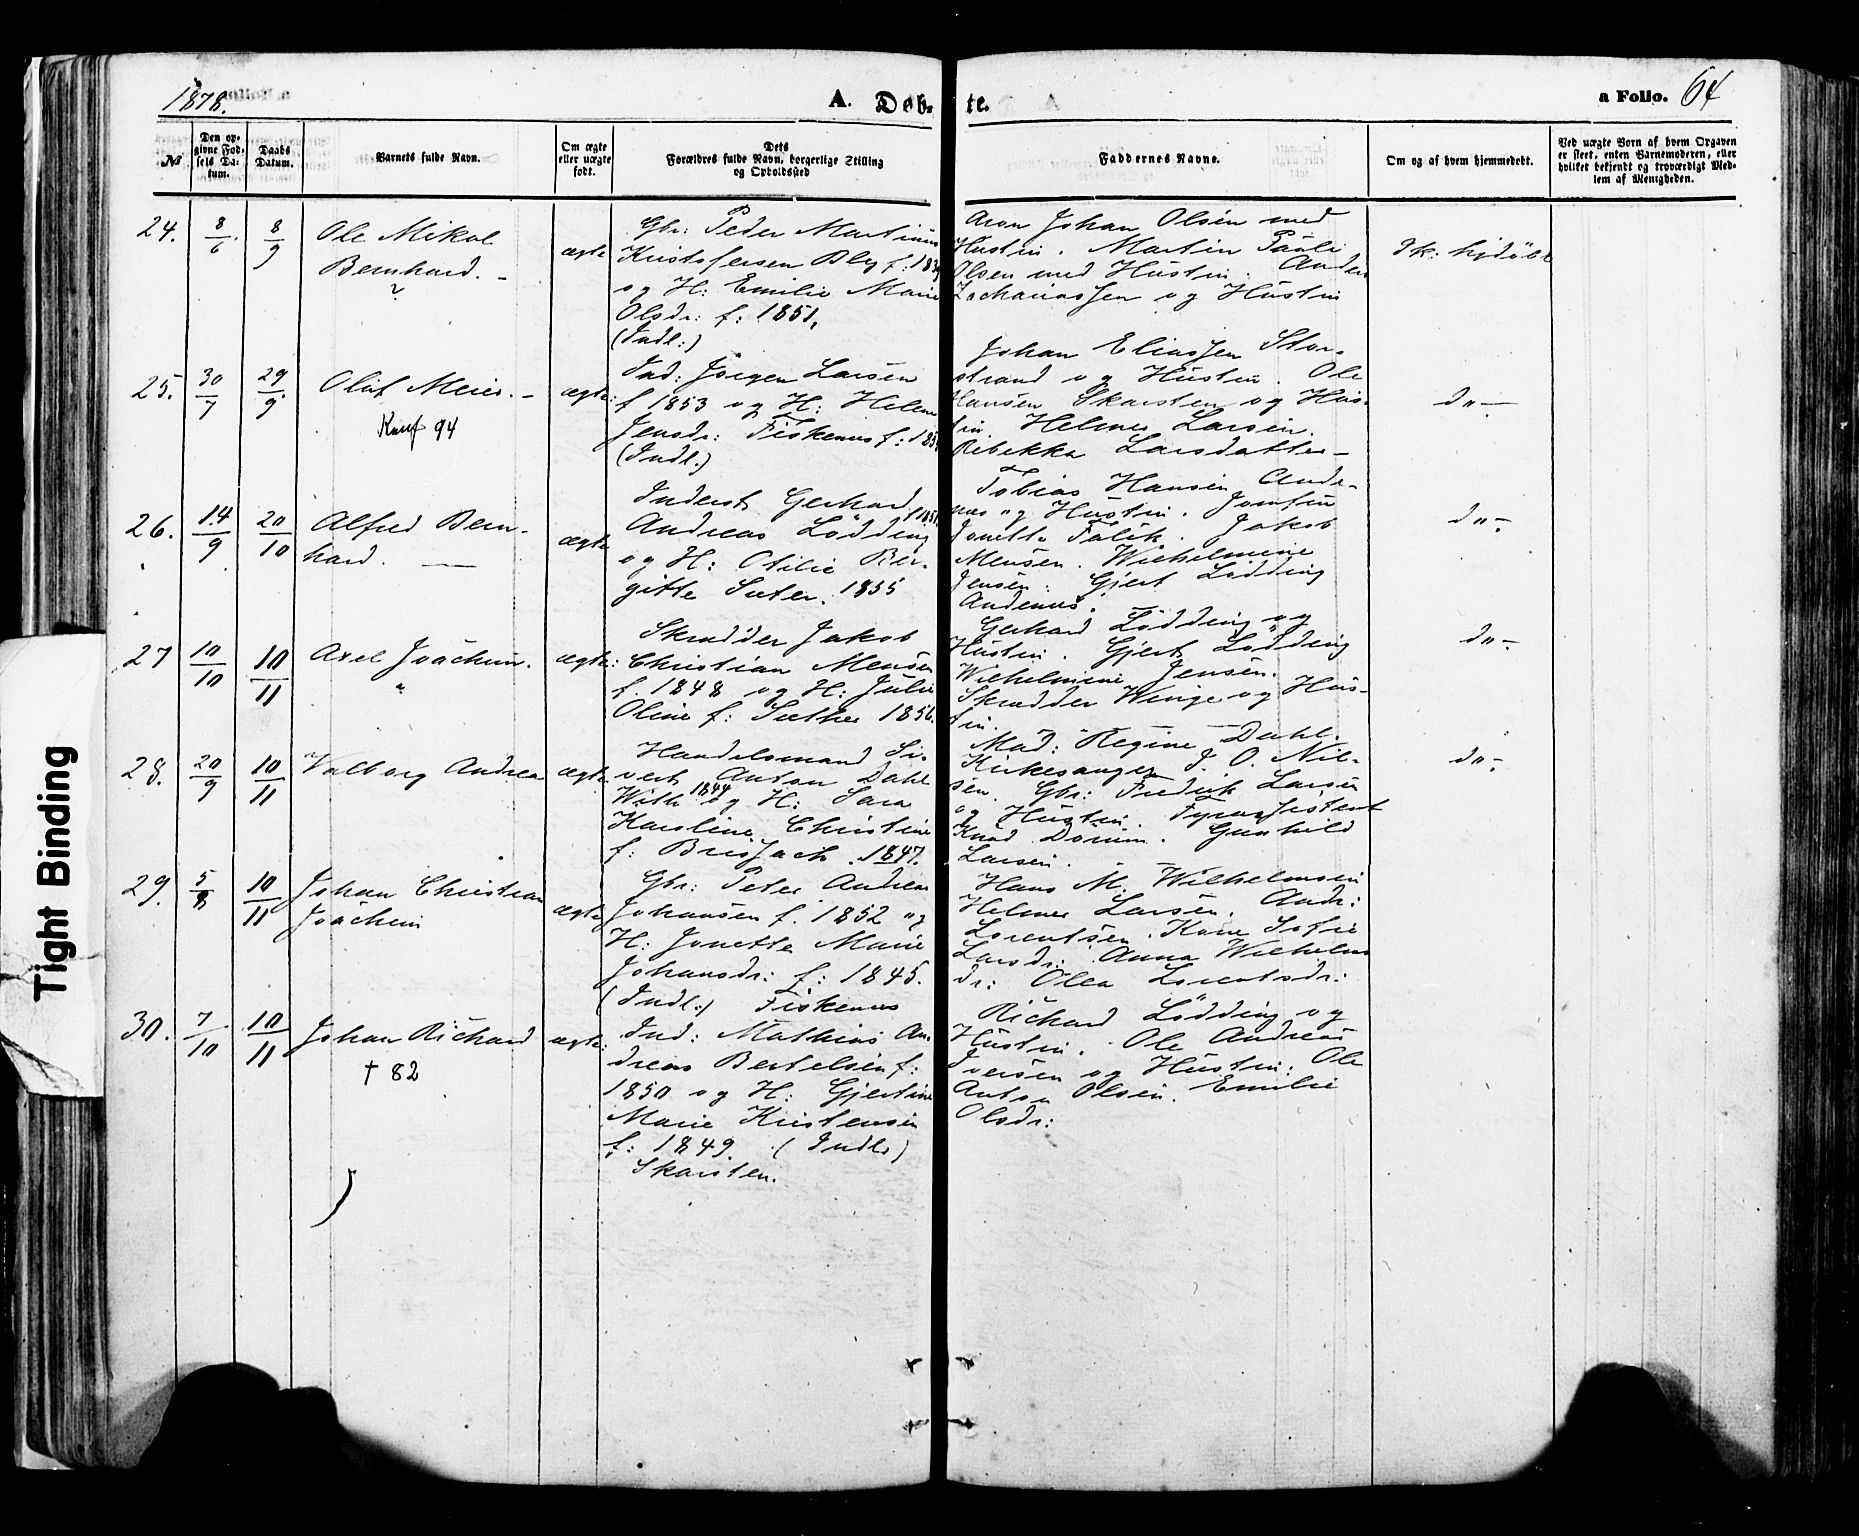 1878.
A. Døb-
te.
a Folio. 64
№
Den op-
givne Fød-
sels Da-
tum.
Daabs
Datum.
Barnets fulde Navn.
Om ægte
eller uægte
født.
Dets
Forældres fulde Navn, borgerlige Stilling
og Opholdssted
Faddernes Navne.
Om og af hvem hjemmedøbt.
Ved uægte Børn af hvem Opgaven
er skeet, enten Barnemoderen, eller
hvilket bekjendt og troværdigt Med-
lem af Menigheden.
24.
8/6
8/9
Ole Mikal
Bernhard. -
ægte
Gbr: Peder Martinus
Kristofersen Bley f: 1839
og H: Emilie Marie
Olsdr: f: 1851,
(Indl:)
Aron Johan Olsen med
Hustru. Martin Pauli
Olsen med Hustru. Anders
Zachariassen og Hustru
Ik: hjdøbt
25.
30/7
29/9
Oluf Meier. -
Konf 94
ægte:
Ind: Jørgen Larsen
f 1853 og H: Helene
Jensdr: Fiskenes f: 185
(Indl.)
Johan Eliassen Stor-
strand og Hustru. Ole
Hansen Skarsten og Hus-
tru. Helmer Larsen.
Rebekka Larsdatter -
do -
26.
14/9
20/10
Alfred Bern-
hard.
ægte
Inderst Gerhard
f 1851
Andreas Lødding
og H: Otilie Ber-
gitte Sæter. 1855
Tobias Hansen Ande-
næs og Hustru. Jomfru
Jonette Falck. Jakob
Mensen. Wilhelmine
Jensen. Gjert Lødding
Andenæs.
do -
27
10/10
10/11
Axel Joachim.
"
ægte:
Skrædder Jakob
Christian Mensen
f. 1848 og H: Julie
Oline f: Sæther 1856.
Gerhard Lødding og
Hustru. Gjert Lødding
Wilhelmine Jensen.
Skrædder Winge og Hus-
tru.
do -
28.
20/9
10/11
Valborg Andrea
ægte
Handelsmand Si-
vert Anton Dahl
With 1844 og H: Sara
Karoline Christine
f: Brisjach. 1847.
Mad: Regine Dahl.
Kirkesanger J. O. Nil-
sen. Gbr: Fredrik Larsen
og Hustru. Fyrassistent
Knud Dørum. Gunhild
Larsen.
do -
29.
5/8
10/11
Johan Christian
Joachim
ægte
Gbr: Peter Andreas
Johansen f. 1852 og
H: Jonette Marie
Johansdr: f: 1845.
(Indl:) Fiskenes
Hans M. Wilhelmsen
Helmer Larsen. Andr:
Lorentsen. Karen Sofie
Larsdr: Anna Wilhelms
dr: Olea Lorentsdr:
30.
7/10
10/11
Johan Richard
† 82
ægte:
Ind: Mathias An-
dreas Bertelsen f:
1850 og H: Gjertine
Marie Kristensen
f: 1849. (Indl:)
Skarsten.
Richard Lødding og
Hustru. Ole Andreas
Iversen og Hustru. Ole
Anton Olsen. Emilie
Olsdr:
Tight Binding